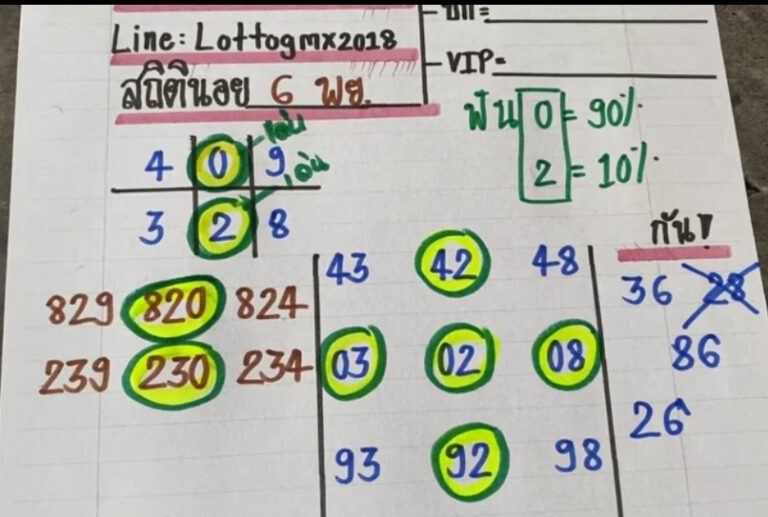 Line: Lottogmx2018
VIP=
สถิตินอย 6 พย.
ฟัน 0 = 90%.
2 = 10%.
4 0 9 เด่น
3 2 8 เด่น
กัน
43 42 48
36 28
829 820 824
239 230 234
03 02 08
86
26
93 92 98